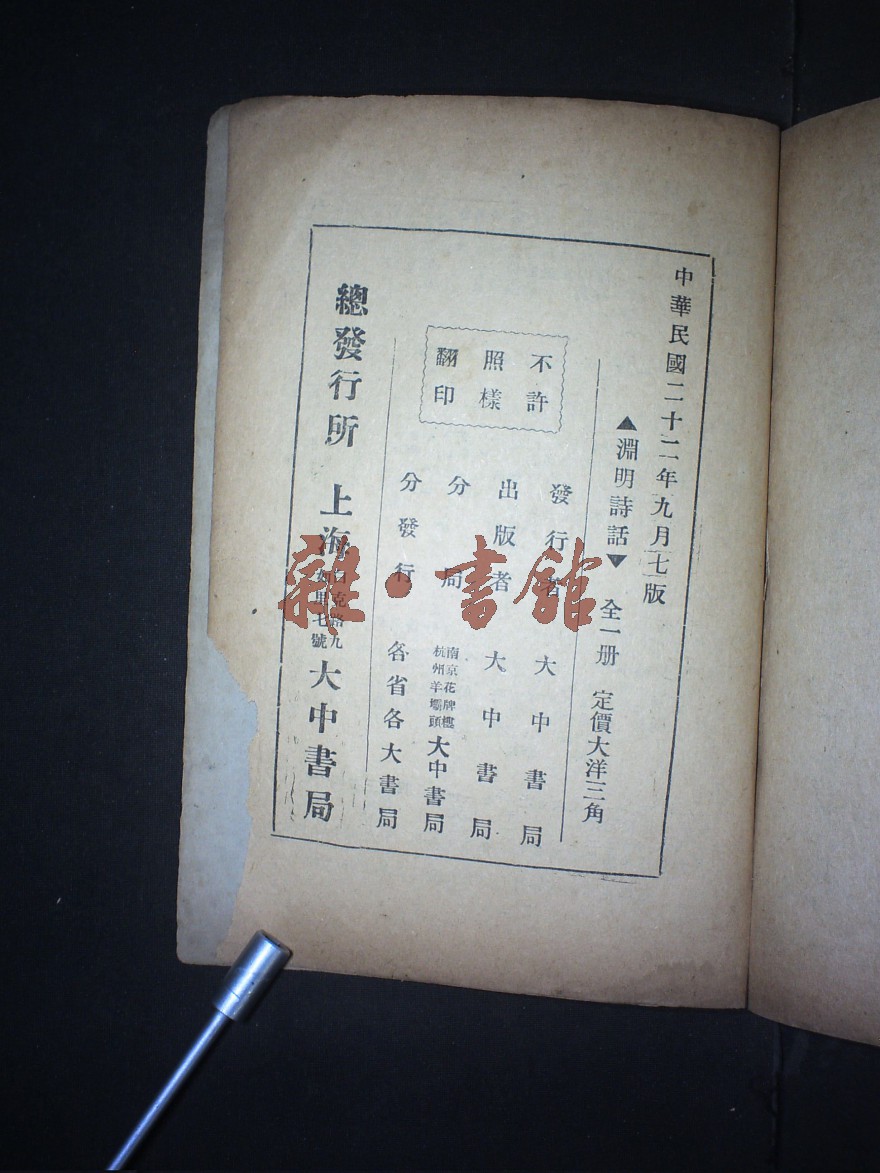 中華民國二十二年九月七版
▲淵明詩話▼ 全一册 定價大洋三角
不許
照樣
翻印
發行者 大中書局
出版者 大中書局
分局 南京花牌樓
杭州羊壩頭 大中書局
分發行 各省各大書局
總發行所 上海
克路九
里七號
大中書局
雜·書館